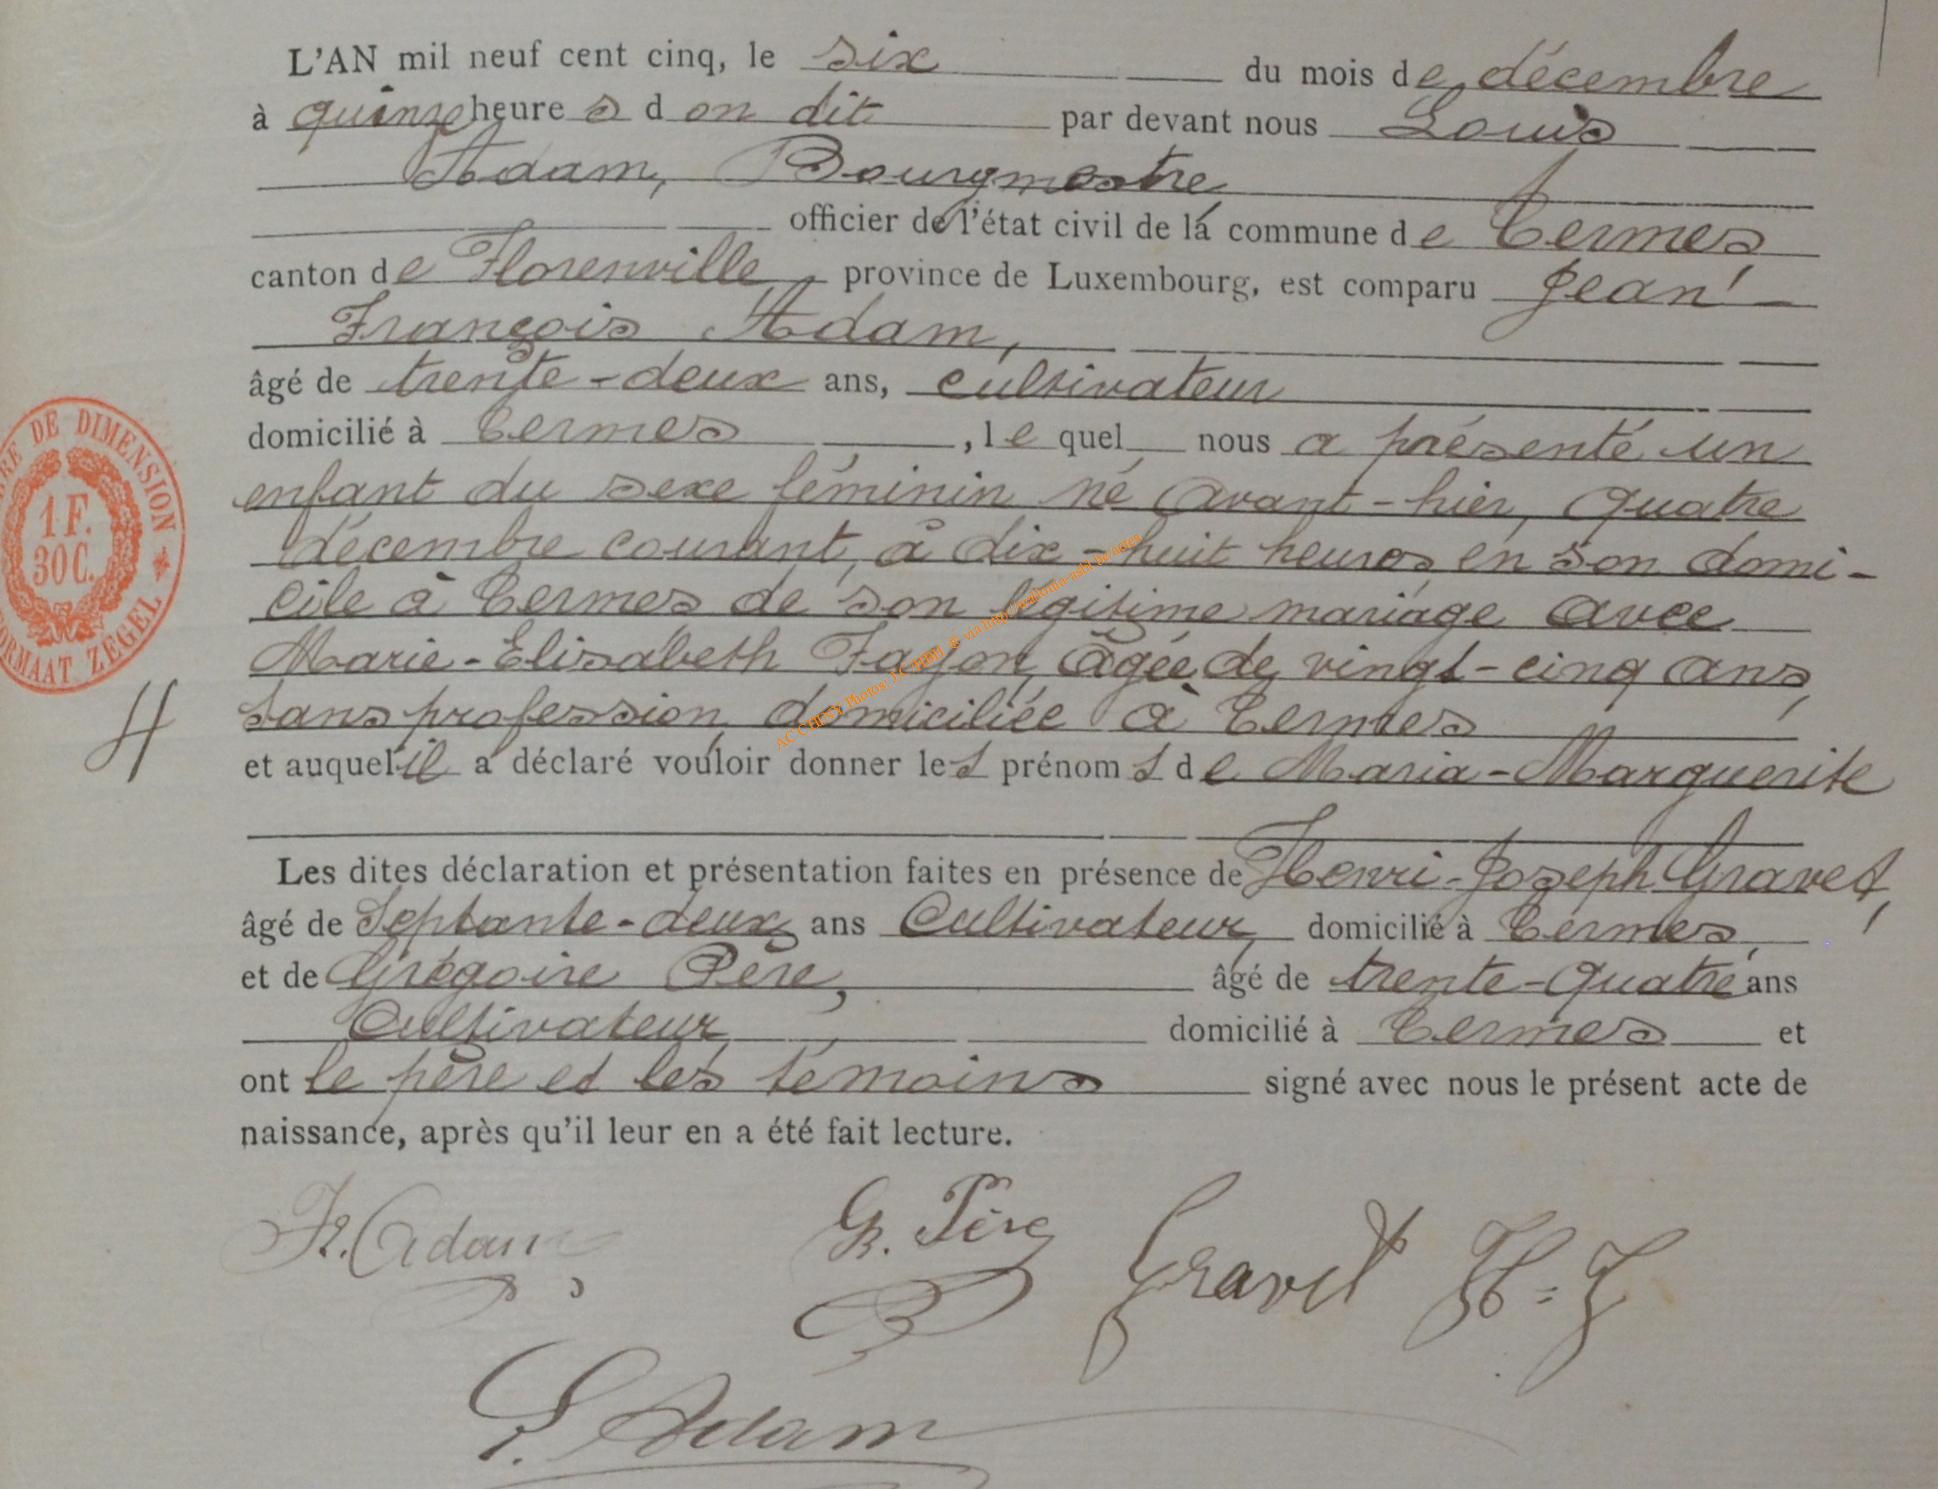 L'AN mil neuf cent cinq, le six du mois de décembre
à quinze heures d on dit par devant nous Louis
Adam, Bourgmestre,
officier de l'état civil de la commune de Termes,
canton de Florenville, province de Luxembourg, est comparu Jean
François Adam,
âgé de trente-deux ans, cultivateur
domicilié à Termes, lequel nous a présenté un
enfant du sexe féminin né avant-hier, quatre
décembre courant, à dix-huit heures, en son domi-
cile à Termes de son légitime mariage avec
Marie-Elisabeth âgée de vingt-cinq ans,
sans profession, domiciliée à Termes
et auquel il a déclaré vouloir donner les prénoms de Maria-Marguerite
Les dites déclaration et présentation faites en présence de Henri-Joseph Gravet,
âgé de Septante-deux ans Cultivateur, domicilié à Termes,
et de Grégoire Père, âgé de trente-quatre ans
Cultivateur domicilié à Termes et
ont le père et les témoins signé avec nous le présent acte de
naissance, après qu'il leur en a été fait lecture.
Fr. Adam
G. Père
Gravet H=J
L. Adam
DE DIMENSION
1 F.
30 C.
FORMAAT ZEGEL